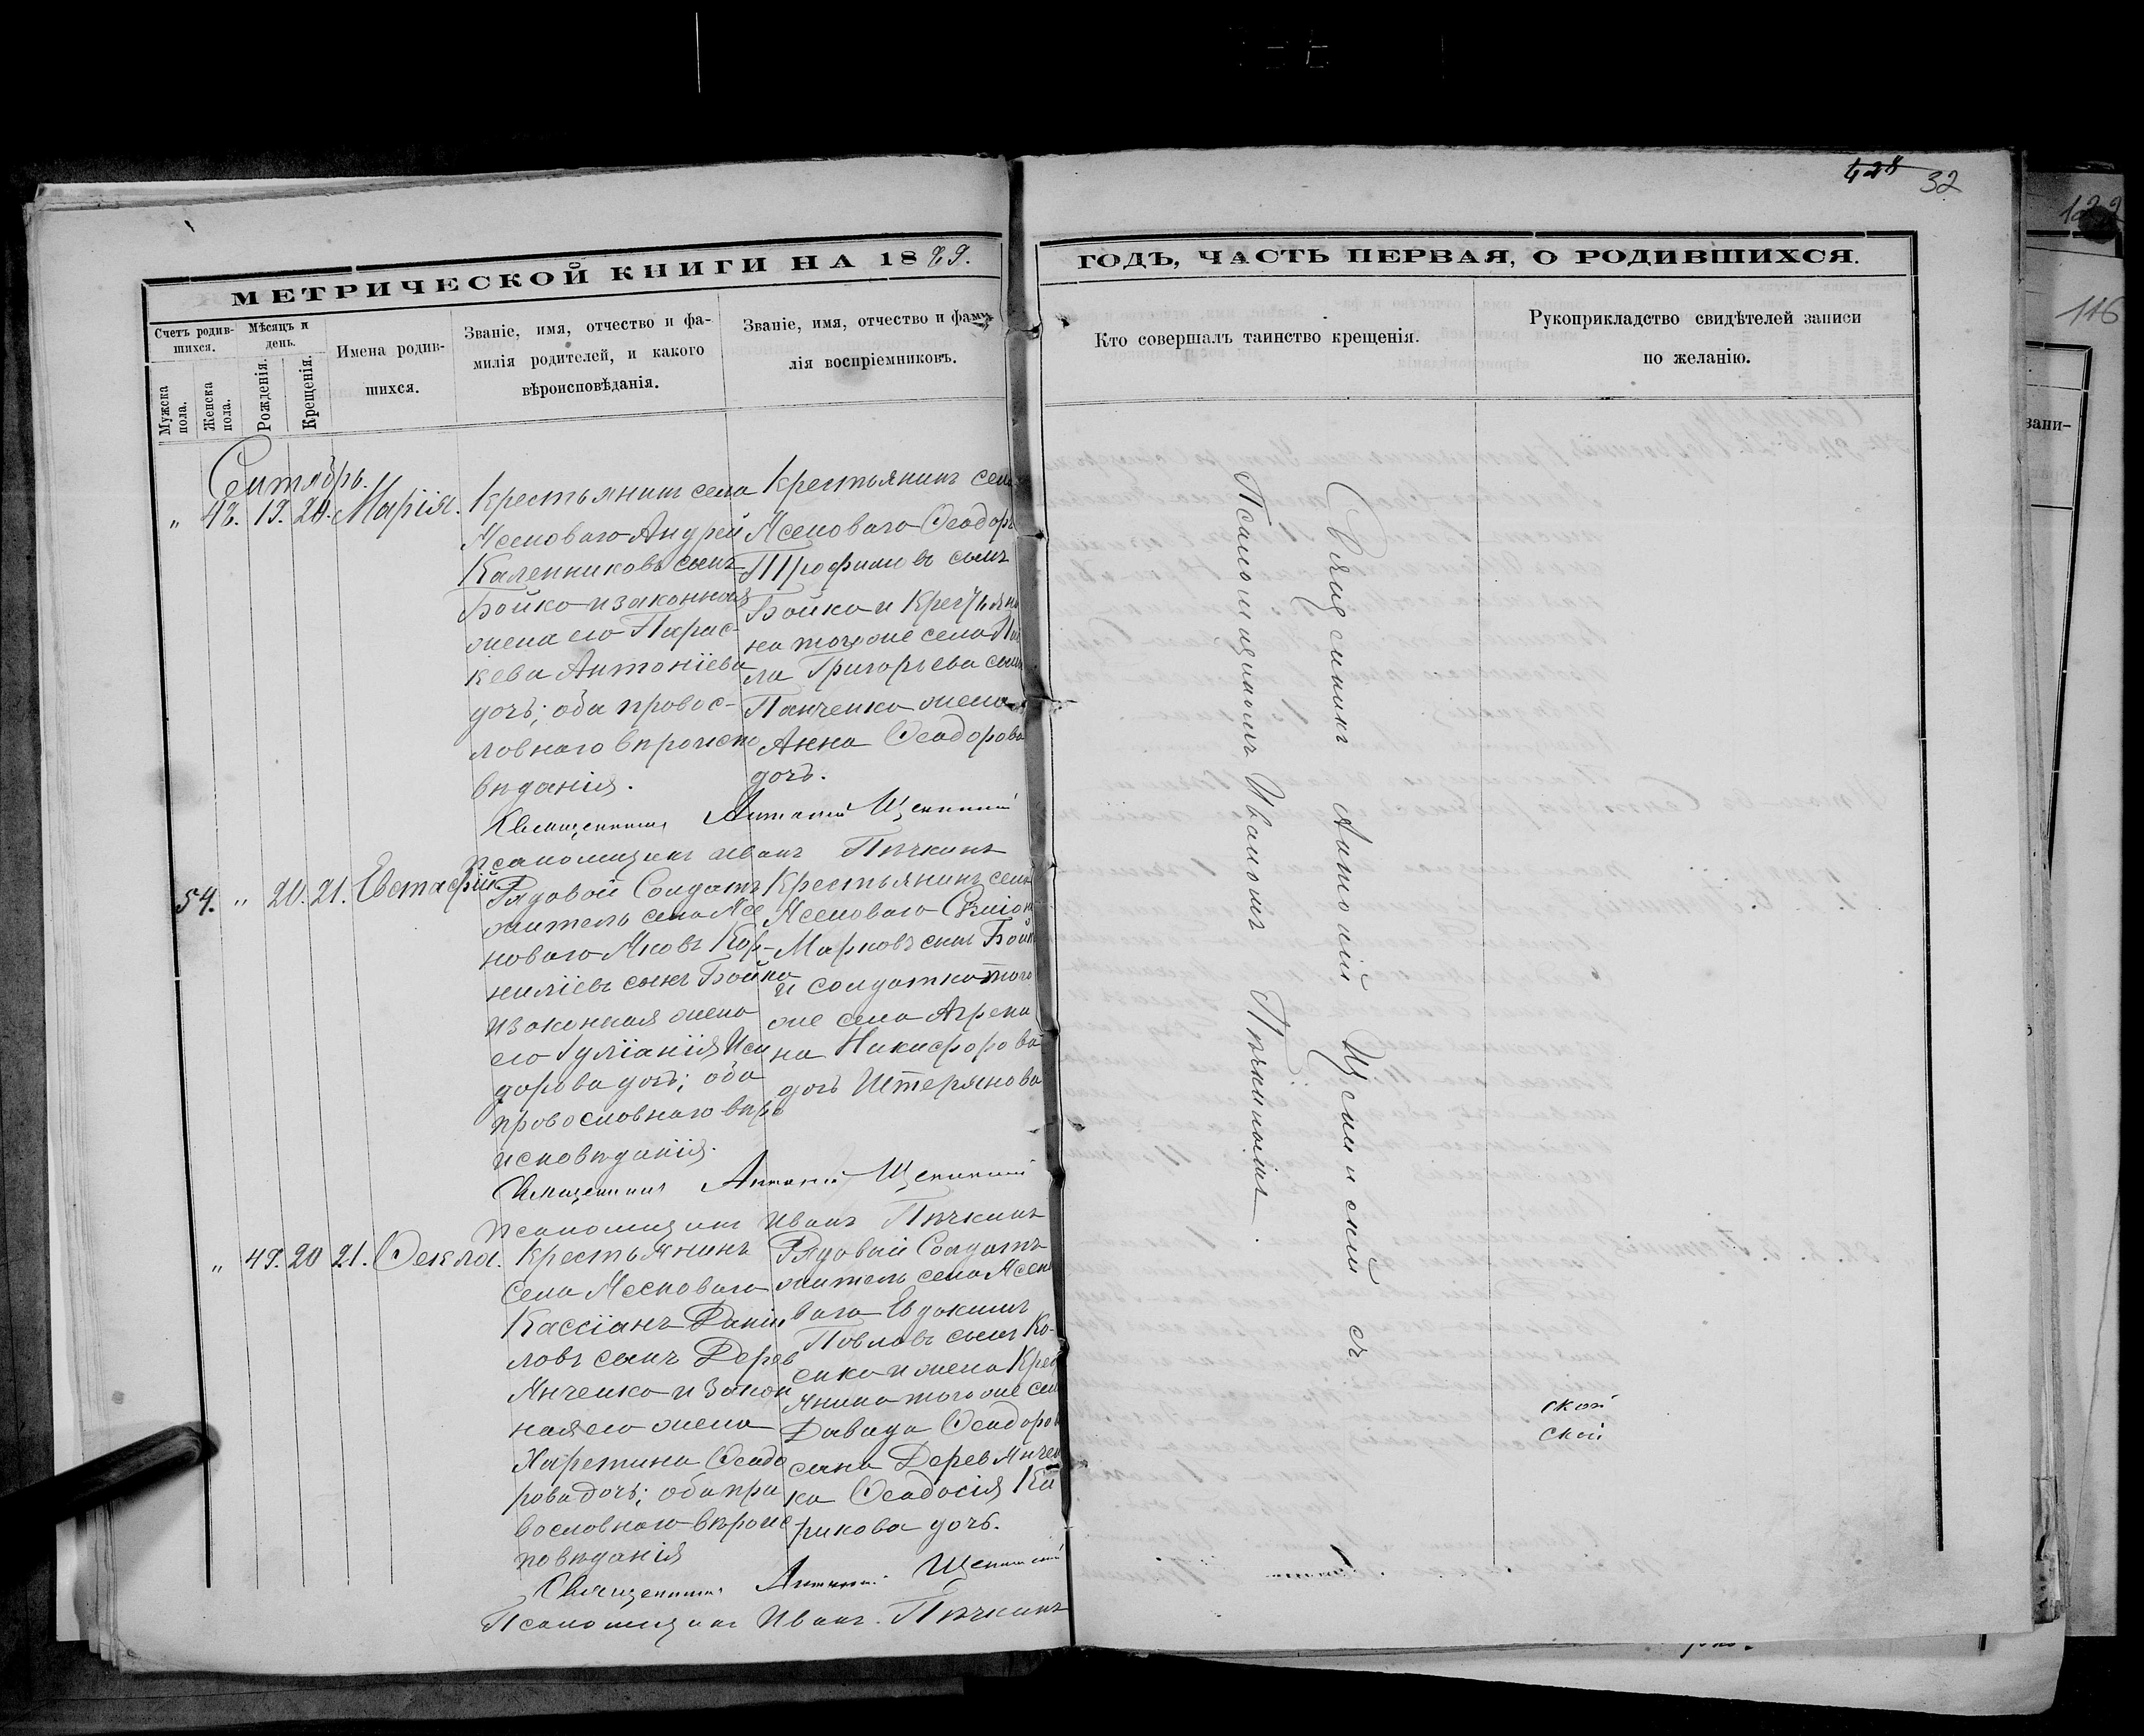 428 32
МЕТРИЧЕСКОЙ КНИГИ НА 1889.
ГОДЪ, ЧАСТЬ ПЕРВАЯ, О РОДИВШИХСЯ.
Счетъ родив-
шихся.
Мужска
пола.
Женска
пола.
Мѣсяцъ и
день.
Рожденія.
Крещенія.
Имена родив-
шихся.
Званіе, имя, отчество и фа-
милія родителей, и какого
вѣроисповѣданія.
Званіе, имя, отчество и фами-
лія воспріемниковъ.
Кто совершалъ таинство крещенія.
Рукоприкладство свидѣтелей записи
по желанію.
Сентябрь.
" 48. 19. 20. Марія.
Крестьянинъ села
Ясеноваго Андрей
Каленниковъ сынъ
Бойко и законная
жена его Парас-
кева Антоніева
дочь; оба провос-
ловнаго вѣроиспо
вѣданія.
Крестьянинъ села
Ясеноваго Ѳеодоръ
Трофимовъ сынъ
Бойко и Крестьяни
на того же села
ла Григорьева сына
Панченка жена
Анна Ѳеодорова
дочь.
Священникъ Антоній Щепинскій
псаломщикъ Иванъ Пѣчкинъ
54. " 20. 21. Евстафій.
Рядовой Солдатъ
житель села Ясе
новаго Яковъ Кор-
ниліевъ сынъ Бойко
и законная жена
его Іуліанія Иси
дорова дочь; оба
провословнаго вѣро
исповѣданія.
Крестьянинъ села
Ясеноваго Симіонъ
Марковъ сынъ Бойко
и солдатка того
же села Агрепи
на Никифорова
дочь Штерянова
Священникъ Антоній Щепинскій
псаломщикъ Иванъ Пѣчкинъ
" 49. 20 21. Ѳекла.
Крестьянинъ
села Ясеноваго
Кассіанъ Даніи
ловъ сынъ Дерев
янченко и закон
ная его жена
Харетина Ѳеодо
рова дочь; оба пра
вославнаго вѣроис-
повѣданія
Рядовой Солдатъ
житель села Ясено
ваго Евдокимъ
Повловъ сынъ Ко-
сенко и жена Крест
янина того же села
Давида Ѳеодорова
сына Деревянчен
ка Ѳеодосія Ки
рикова дочь.
Священникъ Антоній Щепинскій
Псаломщикъ Иванъ Пѣчкинъ
Священникъ Антоній Щепинскій съ
Псаломщикомъ Иваномъ Пѣчкинымъ.
ской
ской
122
116
звани-